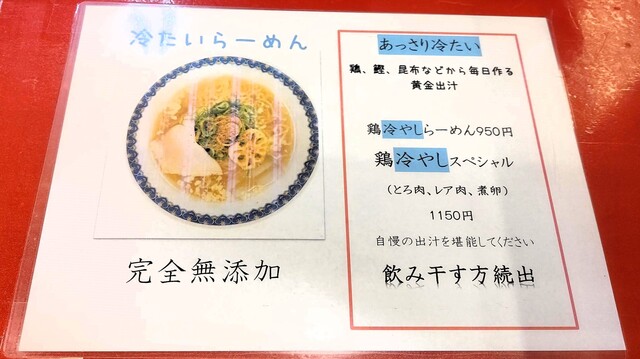 冷たいらーめん
完全無添加
あっさり冷たい
鶏、鰹、昆布などから毎日作る
黄金出汁
鶏冷やしらーめん950円
鶏冷やしスペシャル
(とろ肉、レア肉、煮卵)
1150円
自慢の出汁を堪能してください
飲み干す方続出